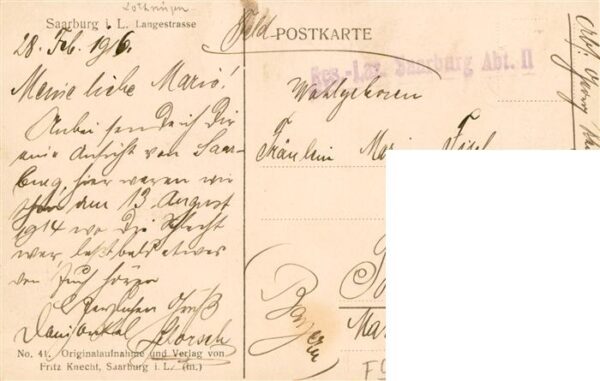 Lothringen
Saarburg i. L. Langestrasse
28. Feb. 1916.
Meine liebe Marie!
Anbei sende ich Dir
eine Ansicht von Saar-
burg, hier waren wir
am 13. August
1914 wo die Schlacht
war, laßt bald etwas
von Euch hören
Gruß
Dein Onkel
No. 41. Originalaufnahme und Verlag von
Fritz Knecht, Saarburg i. L. (m.)
Feld POSTKARTE
Res.-Laz. Saarburg Abt. II
Wohlgeboren
Fräulein
Bayern